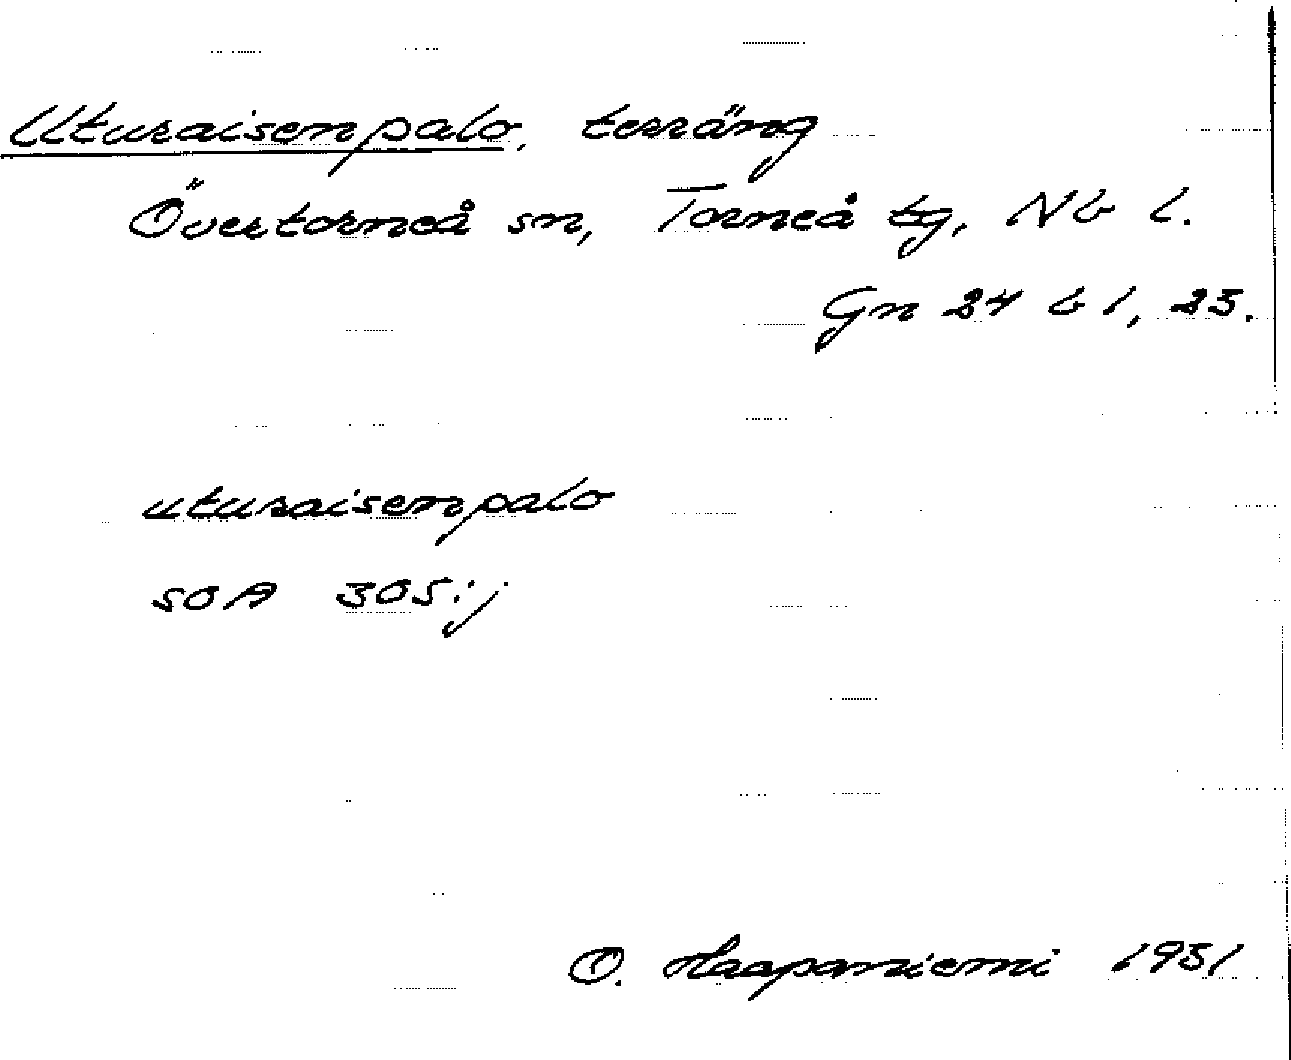 Uturaisenpalo, terräng
Övertorneå sn, Torneå tg, Nb l.
Gn 24 b 1, 25.
uturaisenpalo
SOA 305:j
O. Haapaniemi 1951